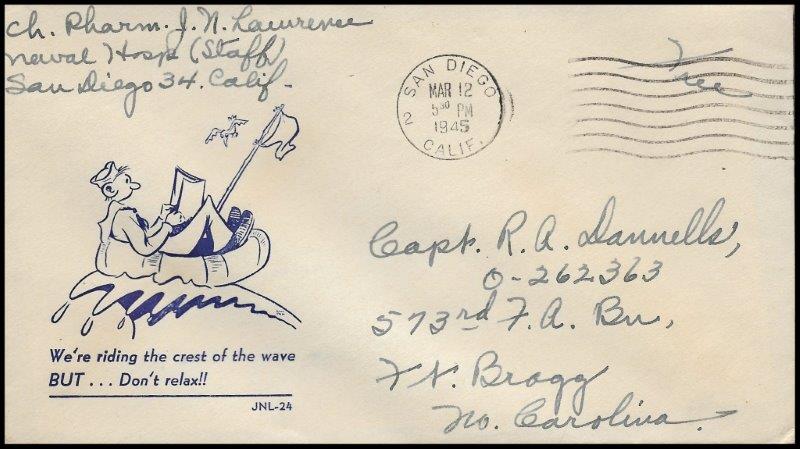 Ch. Pharm. J. N. Lawrence
Naval Hosp (Staff)
San Diego 34. Calif.
SAN DIEGO
MAR 12
5 30 PM
1945
2
CALIF.
Free
Capt. R. A. Dannells,
O-262363
573rd F. A. Bn,
Ft. Bragg
No. Carolina.
We're riding the crest of the wave
BUT . . . Don't relax!!
JNL-24